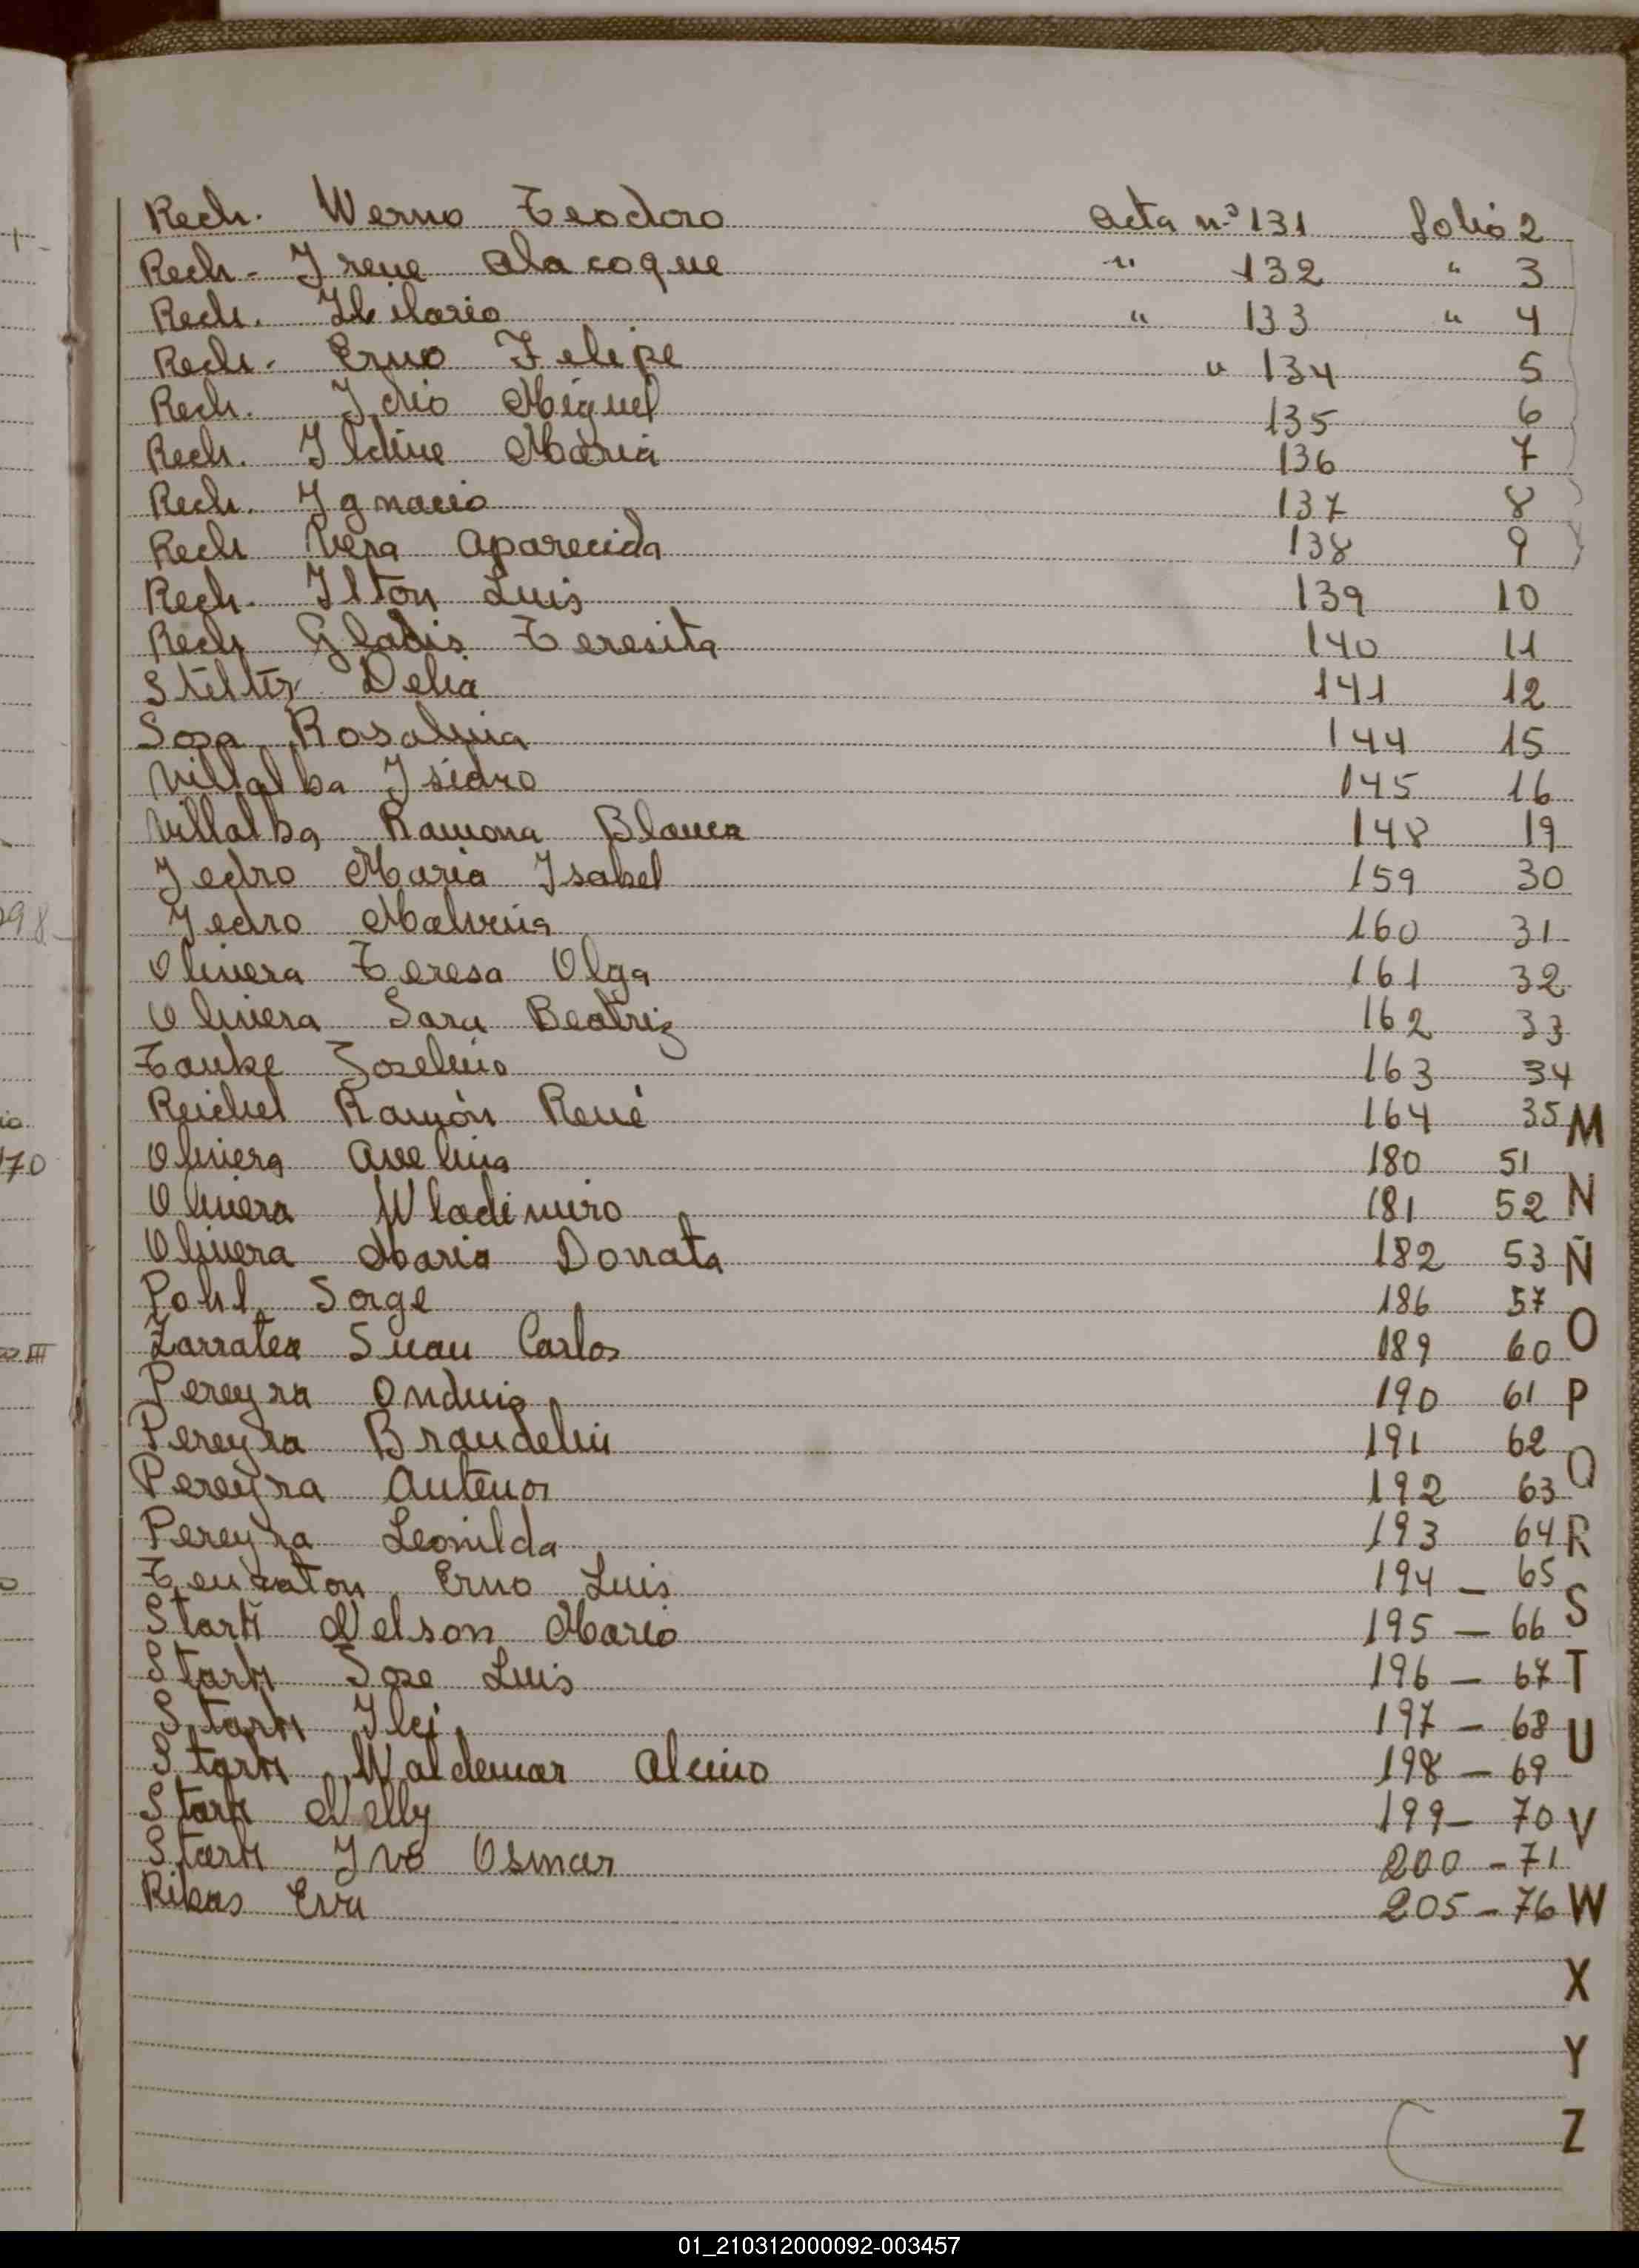 Rech. Werno Teodoro acta nº 131 folio 2
Rech - Irene Alacoque " 132 " 3
Rech. Hilario " 133 " 4
Rech. Erno Felipe " 134 5
Rech. Idio Miguel 135 6
Rech. Ildine Maria 136 7
Rech. Ignacio 137 8
Rech Vera Aparecida 138 9
Rech. Ilton Luis 139 10
Rech Gladis Teresita 140 11
Steltz Delia 141 12
Sosa Rosalina 144 15
Villalba Isidro 145 16
Villalba Ramona Blanca 148 19
Jedro Maria Isabel 159 30
Jedro Malvina 160 31
Olivera Teresa Olga 161 32
Olivera Sara Beatriz 162 33
Tauke Joselino 163 34
Reichel Ramón René 164 35 M
Olivera Avelina 180 51
Olivera Wladimiro 181 52 N
Olivera Maria Donata 182 53 Ñ
Pohl Jorge 186 57
Zarratea Juan Carlos 189 60 O
Pereyra Ondina 190 61 P
Pereyra Braudelin 191 62
Pereyra Antenor 192 63 Q
Pereyra Leonilda 193 64 R
Erno Luis 194 - 65
Stark Nelson Mario 195 - 66 S
Stark Jose Luis 196 - 67 T
Stark Ilei 197 - 68 U
Stark Waldemar Alcino 198 - 69
Stark Nelly 199 - 70 V
Stark Ivo Osmar 200 - 71
Rikas Eva 205 - 76 W
X
Y
Z
98
170
III
01_210312000092-003457